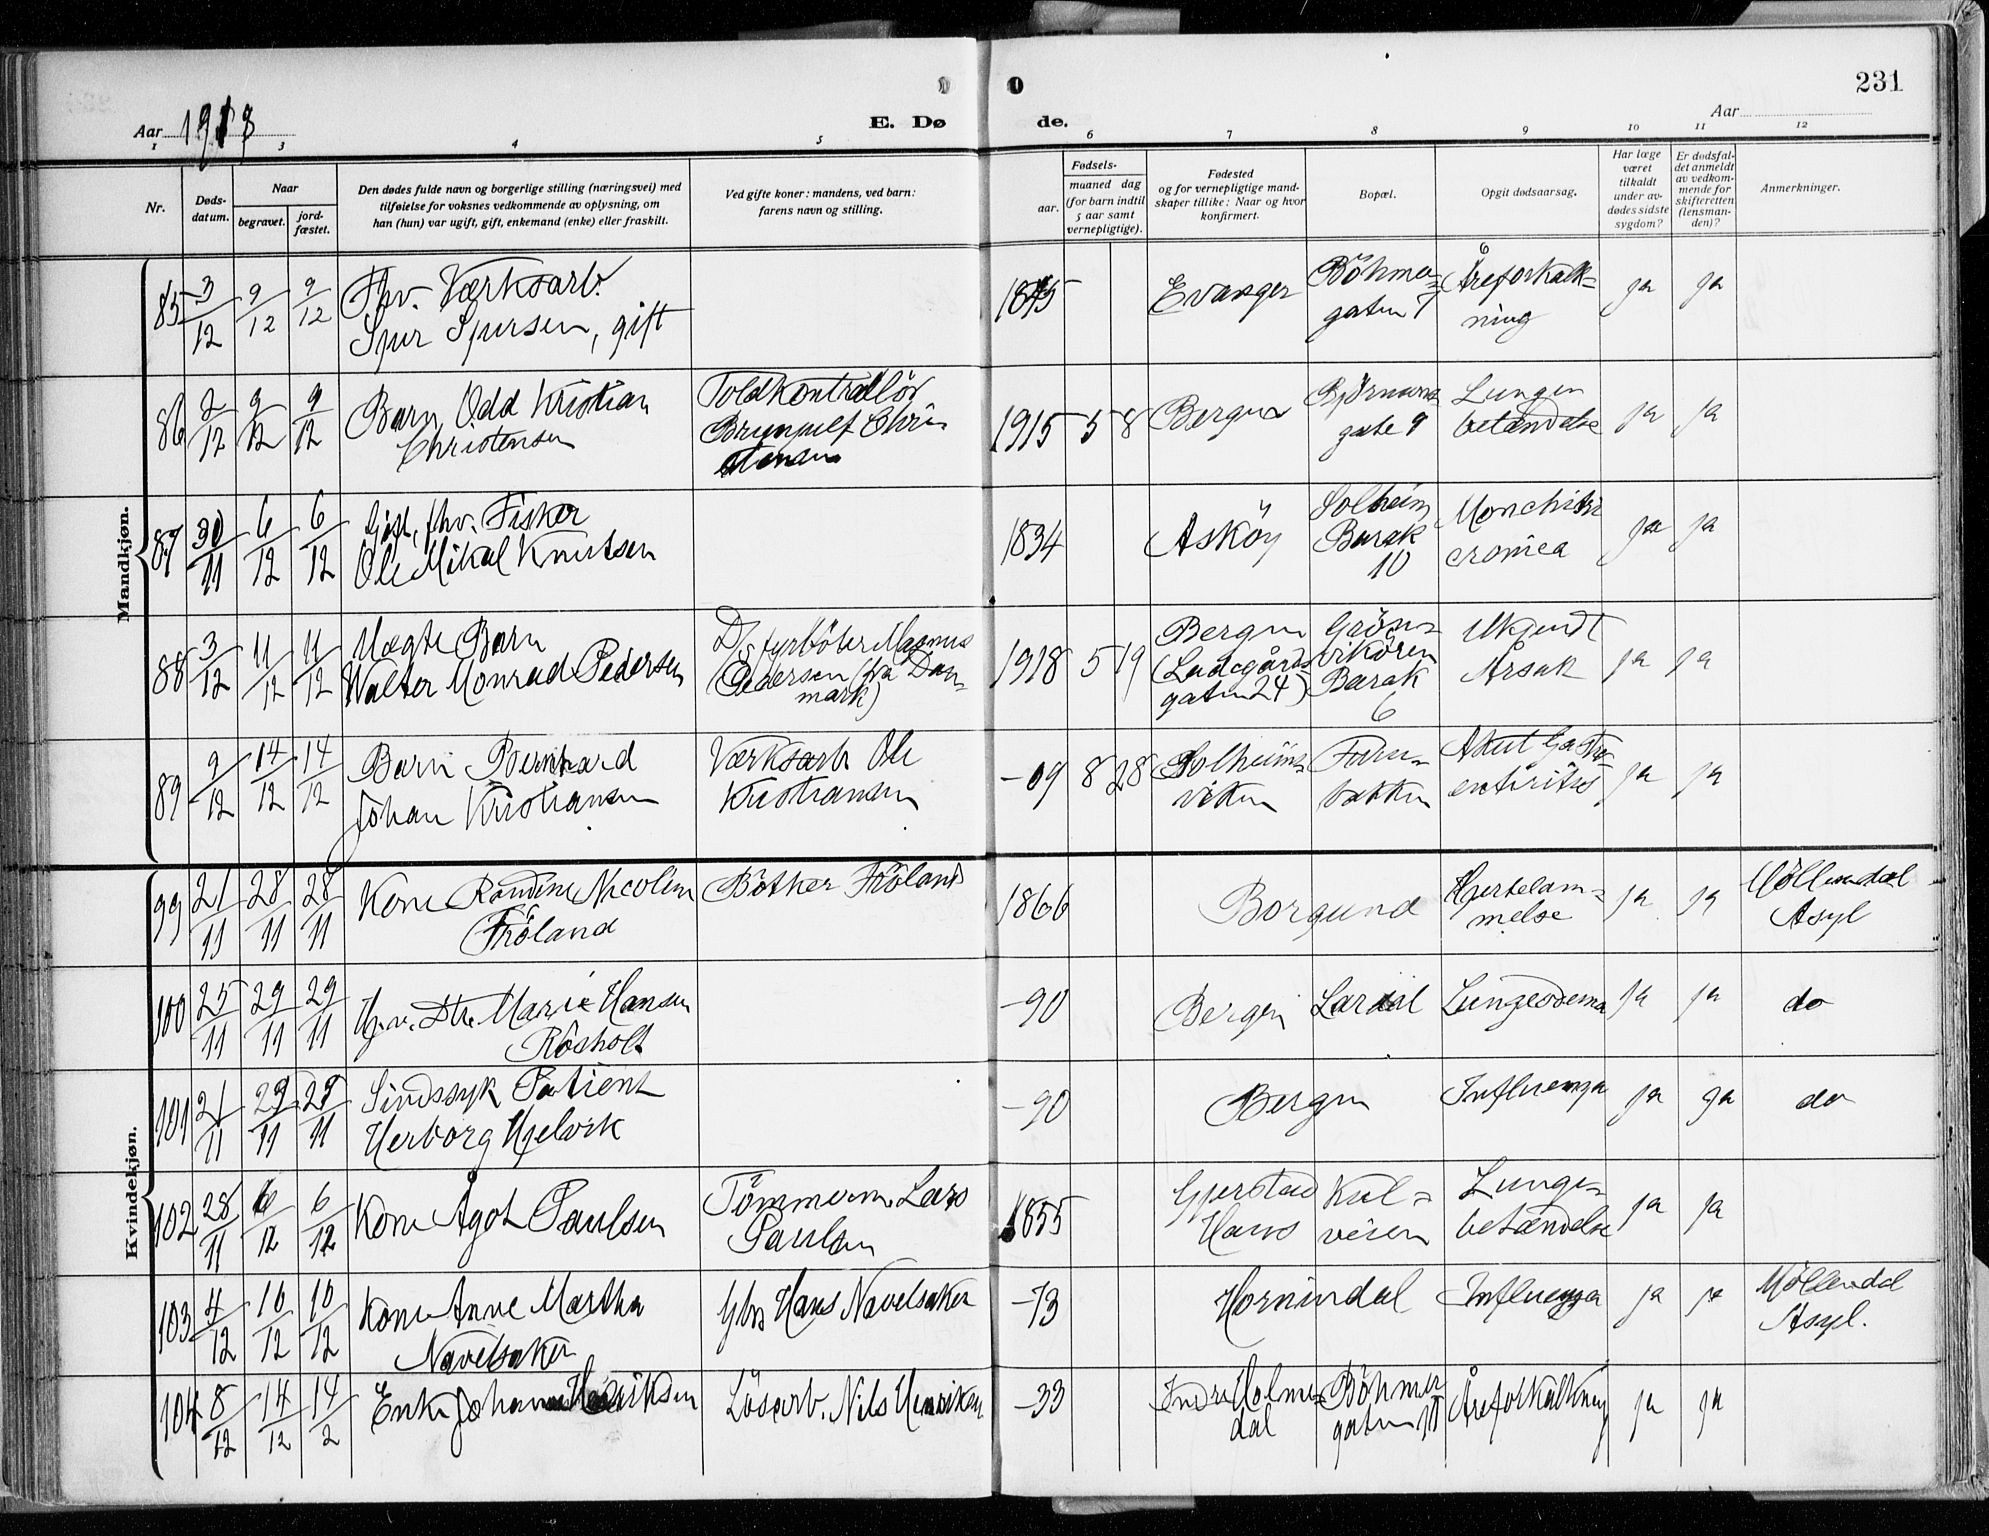 231
Aar 1918
E. Dø de.
Aar
1 3 4 5 6 7 8 9 10 11 12
Nr.
Døds-
datum.
Naar
begravet.
jord-
fæstet.
Den dødes fulde navn og borgerlige stilling (næringsvei) med
tilføielse for voksnes vedkommende av oplysning, om
han (hun) var ugift, gift, enkemand (enke) eller fraskilt.
Ved gifte koner: mandens, ved barn:
farens navn og stilling.
Fødsels-
aar.
maaned dag
(for barn indtil
5 aar samt
vernepligtige).
Fødested
og for vernepligtige mand-
skaper tillike: Naar og hvor
konfirmert.
Bopæl.
Opgit dødsaarsag.
Har læge
været
tilkaldt
under av-
dødes sidste
sygdom?
Er dødsfal-
det anmeldt
av vedkom-
mende for
skifteretten
(lensman-
den)?
Anmerkninger.
Mandkjøn.
85 3/12 9/12 9/12 Fhv. Værksarb.
Sjur Sjursen, gift
1845 Evanger Böhmer-
gaten 7
Åreforkalk-
ning
ja ja
86 2/12 9/12 9/12 Barn Odd Kristian
Christensen
Toldkontrollör
Brynjulf Chri-
stensen
1915 5 8 Bergen
gate 9
Lungen
betændelse
ja ja
87 30/11 6/12 6/12 Gift, fhv. Fisker
Ole Mikal Knutsen
1834 Asköy Solheim
Barak
10
cronica
ja ja
88 3/12 11/12 11/12 Ægte Barn
Walter Monrad Pedersen
D/s fyrböter Magnus
Pedersen (fra Dan-
mark)
1918 5 19 Bergen
(Ladegårds
gaten 24)
vikören
Barak
6
Ukjendt
Årsak
ja ja
89 9/12 14/12 14/12 Barn Bernhard
Johan Kristiansen
Værksarb. Ole
Kristiansen
-09 8 28 Solheims-
viken
Furu-
bakken
Akut Gastro-
enteritis
ja ja
Kvindekjøn.
99 21/11 28/11 28/11 Kone Randine Nicoline
Fröland
Bötker Fröland
1866 Borgund Hjertelam-
melse
ja ja Möllendal
Asyl
100 25/11 29/11 29/11 Marie Hansen
Rösholt
-90 Bergen Lardal Lungeödema ja ja do
101 21/11 29/11 29/11 Sindssyk Patient
Herborg Hjelvik
-90 Bergen Influenza ja ja do
102 28/11 6/12 6/12 Kone Ågot Paulsen
Tömmerm. Lars
Paulsen
1855 Gjerstad
Haus
veien
Lunge-
betændelse
ja ja
103 4/12 10/12 10/12 Kone Anne Martha
Navelsaker
Gbr. Hans Navelsaker
-73 Hornindal Influenza ja ja Möllendal
Asyl.
104 8/12 14/12 14/2 Enke Johanne Henriksen
Lösarb. Nils Henriksen
-33 Indre Holme-
dal
Böhmer
gaten
Åreforkalkning ja ja